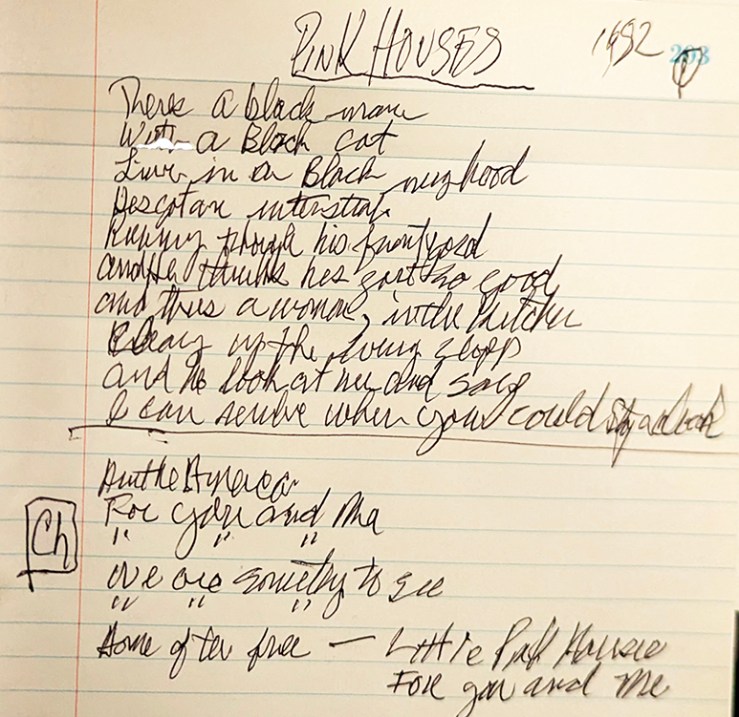 PINK HOUSES
1982 203
1
Theres a black man
With a Black cat
Live in a Black neighood
Hes got an interstate
Running though his frontyard
and He thinks hes got it so good
and theres a woman in the kitchen
Cleang up the evning slopp
and he look at her and says
I can remeber when you could stop a clock
Aint the America
For you and Me
" " "
We are somethg to see
" " "
Home of the free — Little Pink Houses
For you and Me
Ch